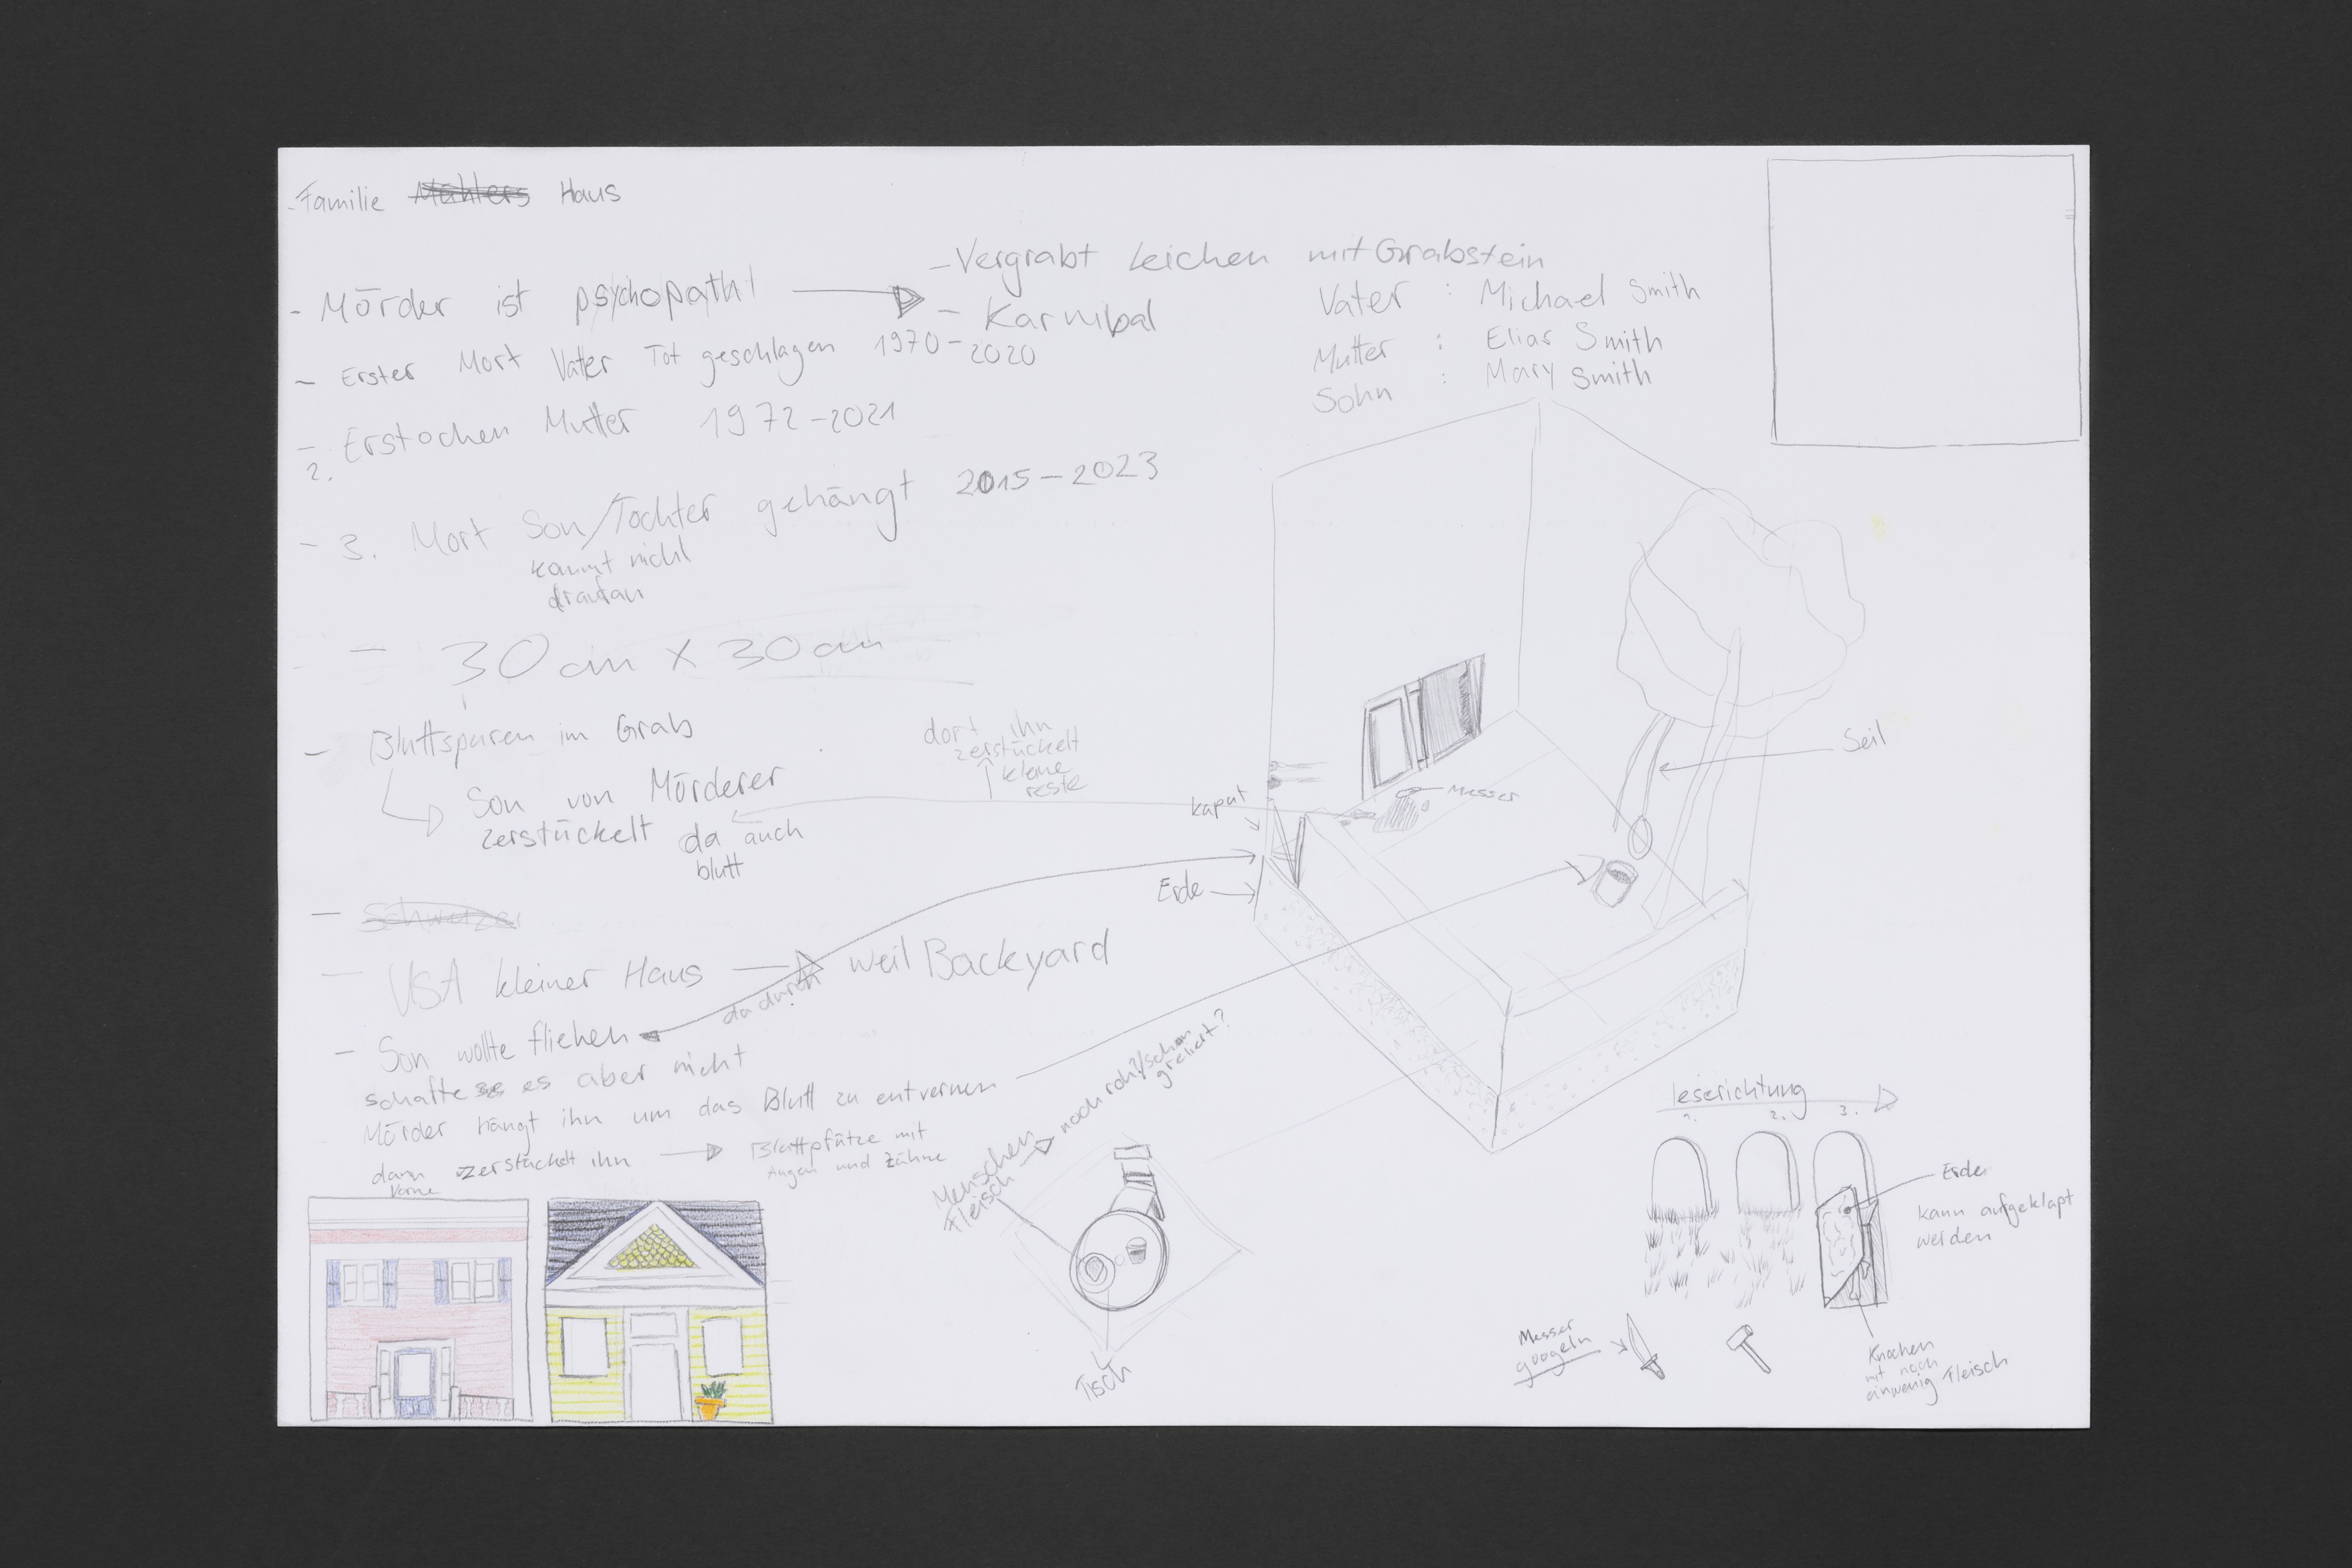 - Familie Mühlers Haus
- Mörder ist psychopath!
- Vergrabt Leichen mit Grabstein
- Karnibal
Vater : Michael Smith
Mutter : Elias Smith
Sohn : Mary Smith
- Erster Mort Vater Tot geschlagen 1970-2020
- 2. Erstochen Mutter 1972-2021
- 3. Mort Son/Tochter gehängt 2015-2023
kammt nicht
draufan
- 30 cm x 30 cm
- Bluttspuren im Grab
Son von Mörderer
zerstückelt da auch
blutt
dort ihn
zerstückelt
kleine
reste
- Schweizer
- USA kleiner Haus
weil Backyard
- Son wollte fliehen
dadurch
schafte es aber nicht
Mörder hängt ihn um das Blutt zu entvernen
dann zerstückelt ihn
Bluttpfütze mit
Augen und Zähne
Vorne
kaput
Erde
Messer
Seil
Menschen
Fleisch
noch roh?/schon
greliert?
Tisch
leserichtung
1. 2. 3.
Erde
kann aufgeklapt
werden
Messer
googeln
Knochen
mit noch
einwenig Fleisch